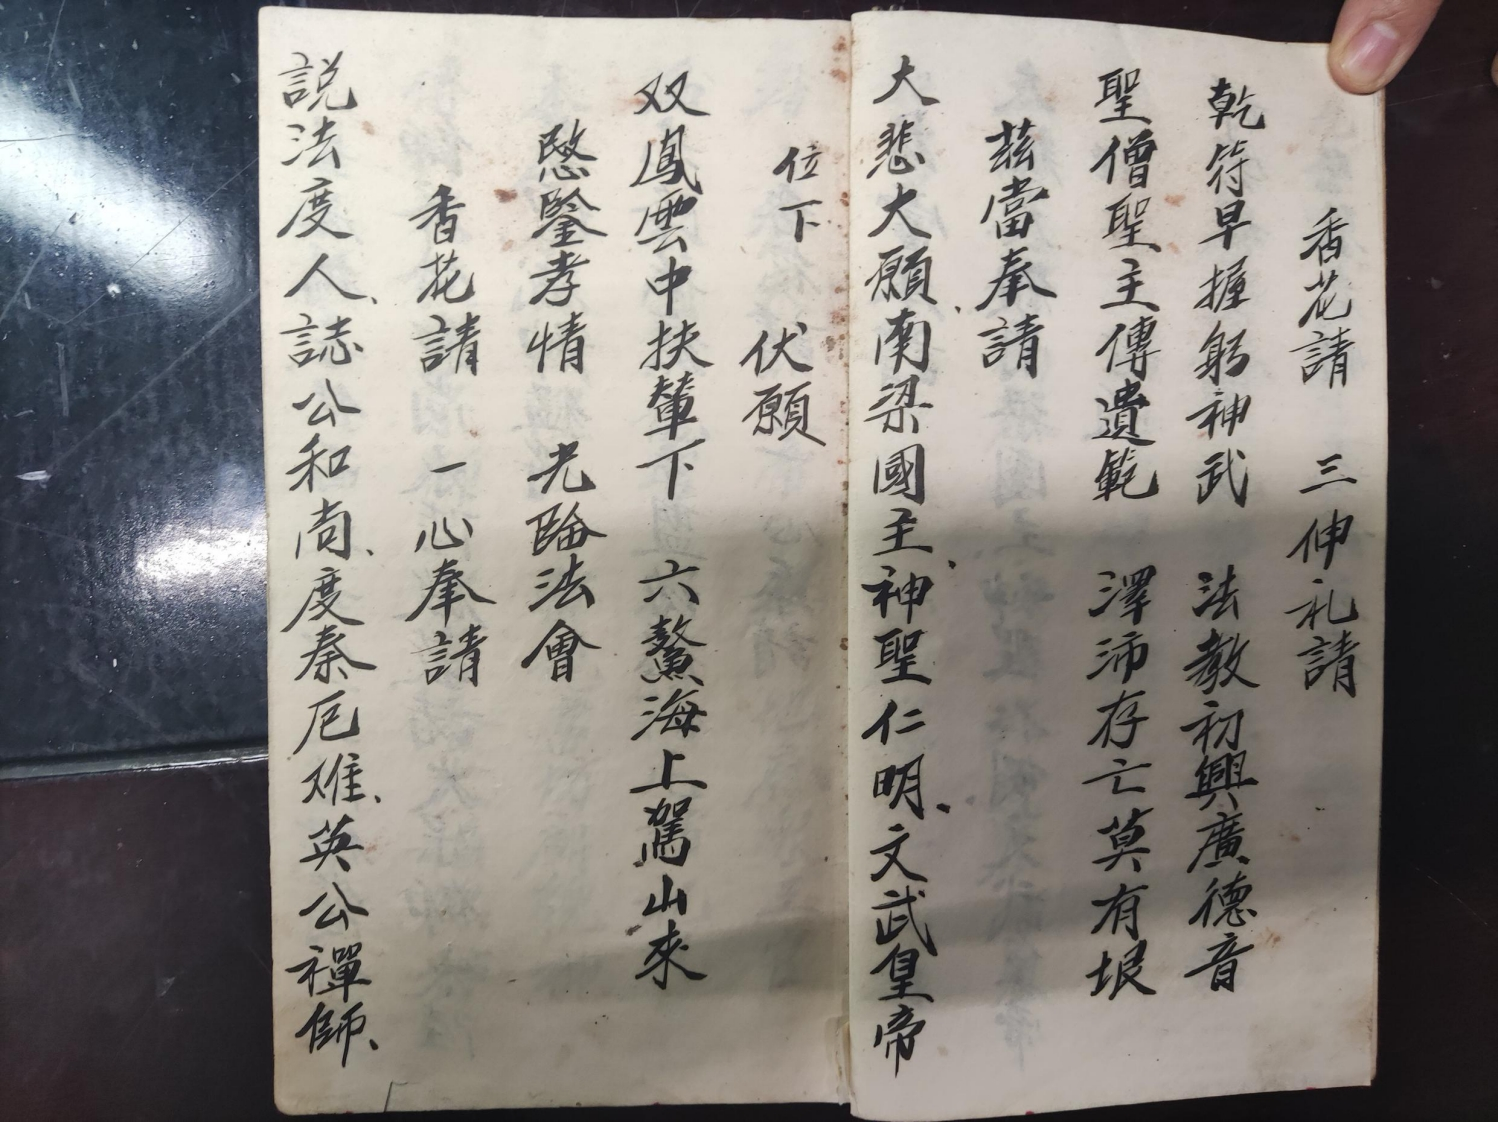 香花請　三伸礼請
乾符早握躬神武　法教初興廣德音
聖僧聖主傳遺範　澤沛存亡莫有垠
茲當奉請
大悲大願、南梁國主、神聖仁明、文武皇帝
位下　伏願
双鳳雲中扶輦下　六鰲海上駕山來
愍鑒孝情　光臨法會
香花請　一心奉請
説法度人、誌公和尚、度秦厄难、英公禪師、